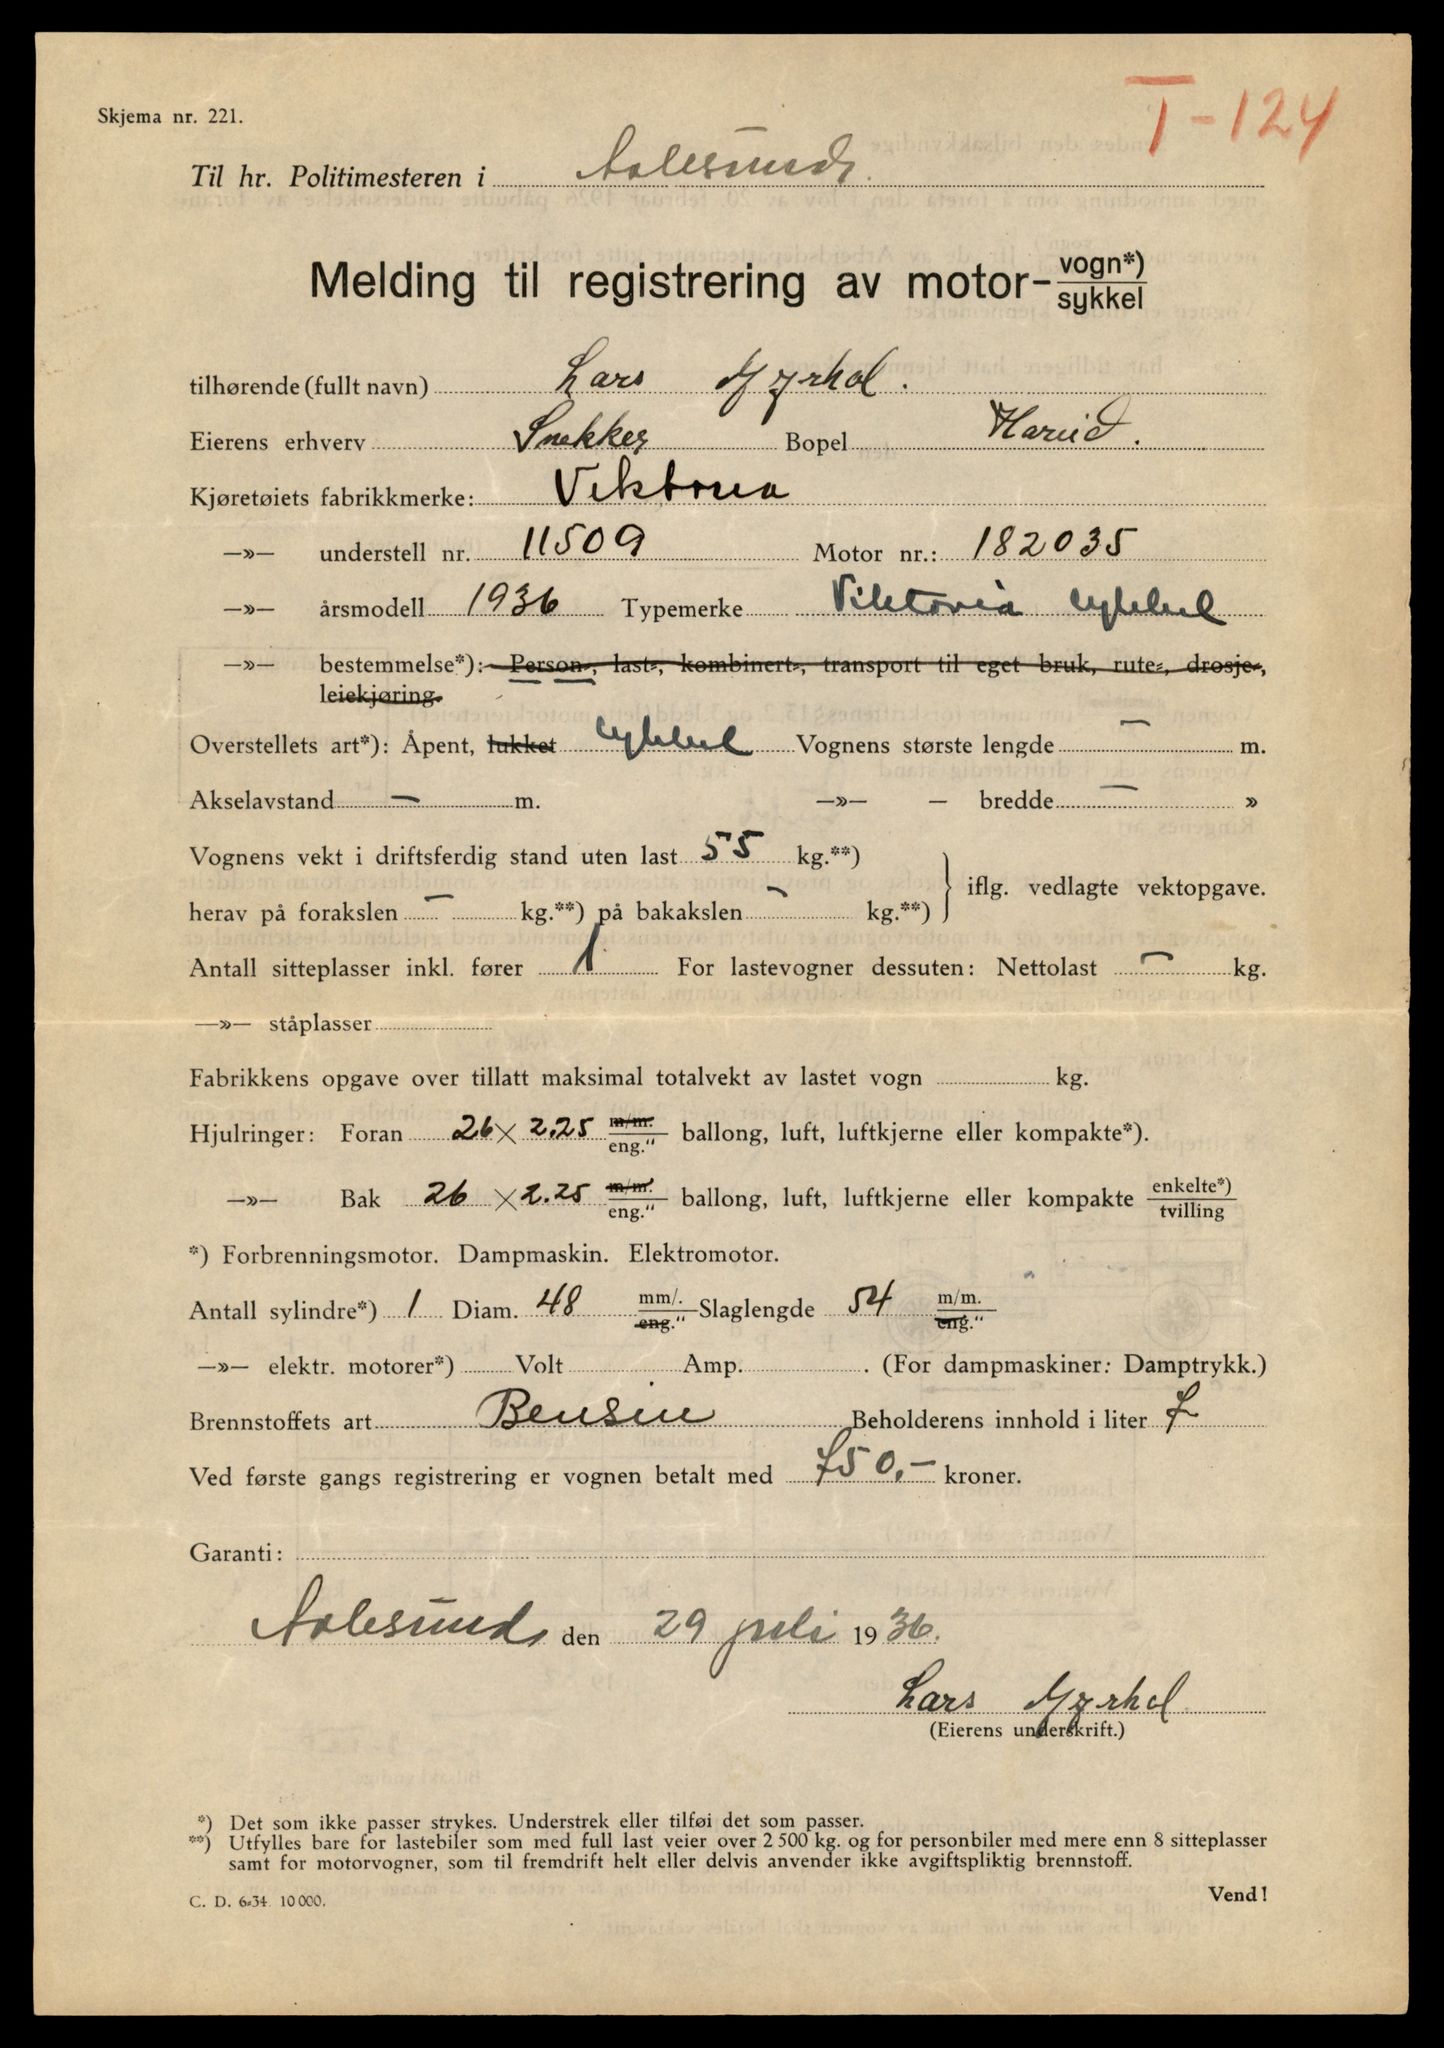 T-124
Skjema nr. 221.
Til hr. Politimesteren i Aalesund.
Melding til registrering av motor-vogn*)/sykkel
tilhørende (fullt navn) Lars Myrhol.
Eierens erhverv Snekker Bopel Hareid.
Kjøretøiets fabrikkmerke: Viktoria
—»— understell nr. 11509 Motor nr.: 182035
—»— årsmodell 1936 Typemerke Viktoria sykkel
—»— bestemmelse*): Person-, last-, kombinert-, transport til eget bruk, rute-, drosje-,
leiekjøring.
Overstellets art*): Åpent, lukket sykkel Vognens største lengde — m.
Akselavstand — m. —»— — bredde — »
Vognens vekt i driftsferdig stand uten last 55 kg.**)
herav på forakslen — kg.**) på bakakslen — kg.**) } iflg. vedlagte vektopgave.
Antall sitteplasser inkl. fører 1 For lastevogner dessuten: Nettolast — kg.
—»— ståplasser
Fabrikkens opgave over tillatt maksimal totalvekt av lastet vogn kg.
Hjulringer: Foran 26 × 2.25 m/m./eng." ballong, luft, luftkjerne eller kompakte*).
—»— Bak 26 × 2.25 m/m./eng." ballong, luft, luftkjerne eller kompakte enkelte*)/tvilling
*) Forbrenningsmotor. Dampmaskin. Elektromotor.
Antall sylindre*) 1 Diam. 48 mm/./eng." Slaglengde 54 m/m./eng."
—»— elektr. motorer*) Volt Amp. . (For dampmaskiner: Damptrykk.)
Brennstoffets art Bensin Beholderens innhold i liter 7
Ved første gangs registrering er vognen betalt med 750,- kroner.
Garanti:
Aalesund den 29 juli 1936.
Lars Myrhol
(Eierens underskrift.)
*) Det som ikke passer strykes. Understrek eller tilføi det som passer.
**) Utfylles bare for lastebiler som med full last veier over 2 500 kg. og for personbiler med mere enn 8 sitteplasser
samt for motorvogner, som til fremdrift helt eller delvis anvender ikke avgiftspliktig brennstoff.
C. D. 6-34. 10 000.
Vend!